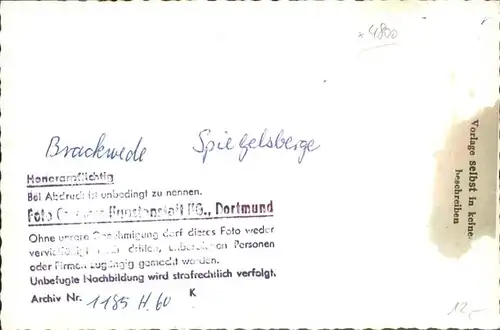 x 4800
Brackwede Spiegelsberge
Honorarpflichtig
Bei Abdruck ist unbedingt zu nennen.
Foto Kunstanstalt KG., Dortmund
Ohne unsere Genehmigung darf dieses Foto weder
unberufenen Personen
oder Firmen zugängig gemacht werden.
Unbefugte Nachbildung wird strafrechtlich verfolgt.
Archiv Nr. 1185 H. 60 K
Vorlage selbst in keine
beschreiben
12,-